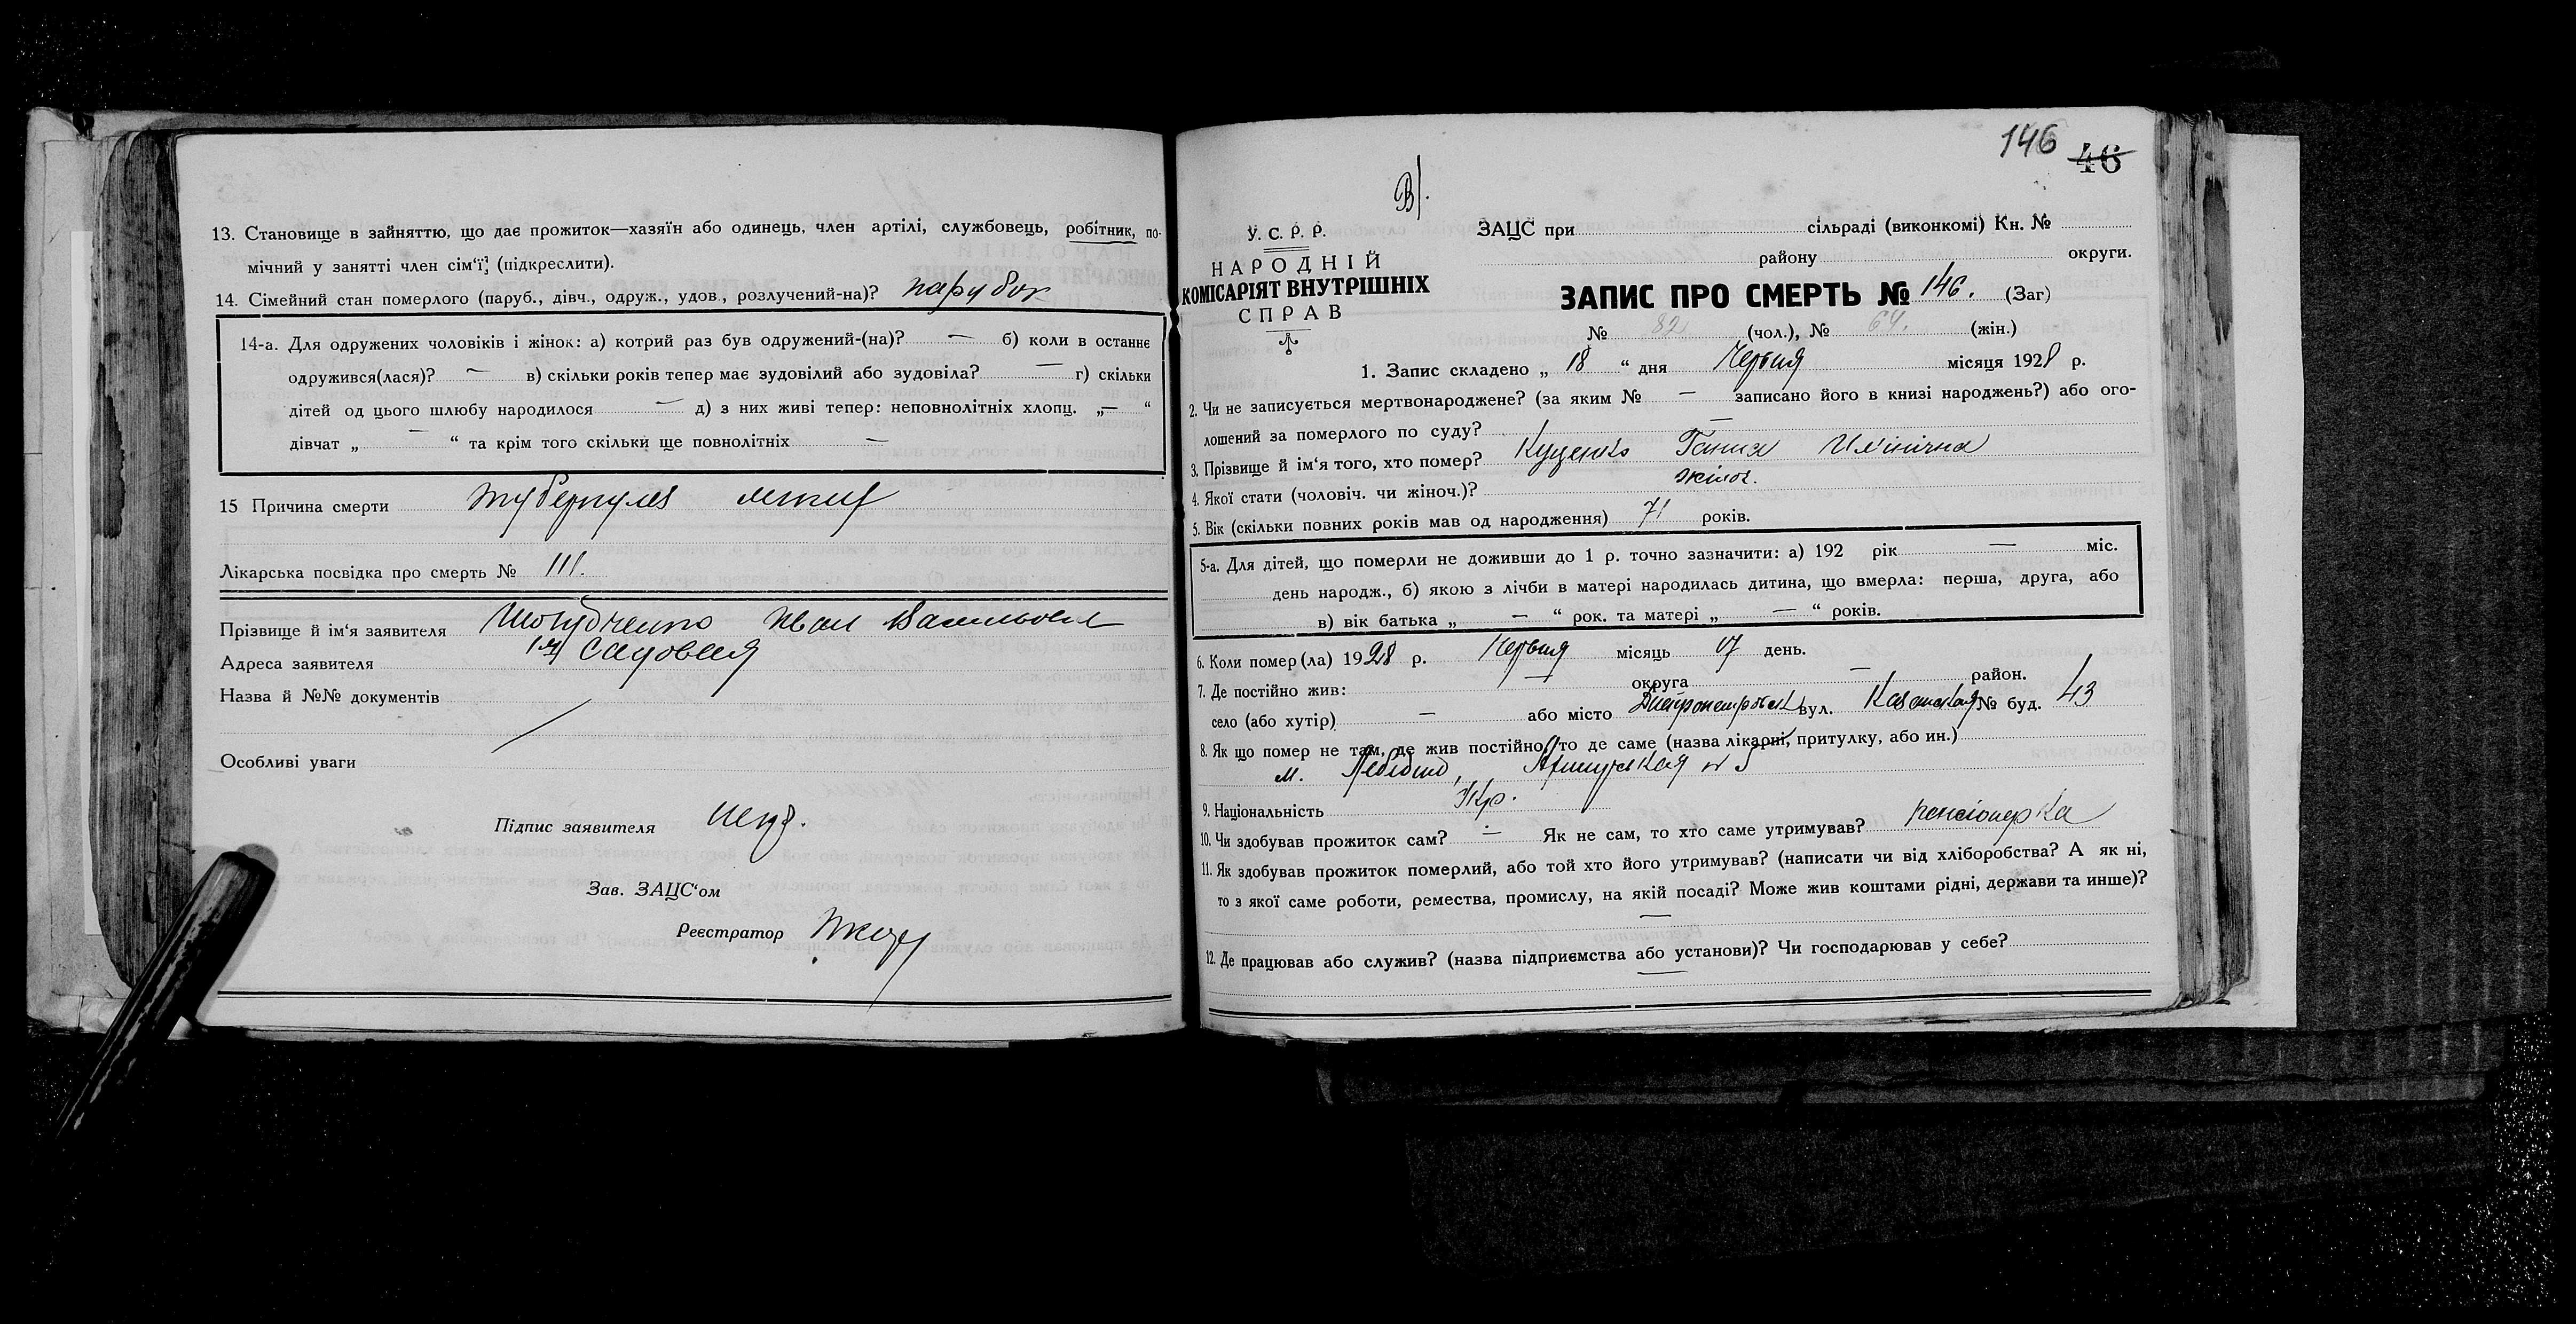 13. Становище в зайняттю, що дає прожиток—хазяїн або одинець, член артілі, службовець, робітник, по-
мічний у занятті член сім‘ї, (підкреслити).
14. Сімейний стан померлого (паруб., дівч., одруж., удов., розлучений-на)? парубок
14-а. Для одружених чоловіків і жінок: а) котрий раз був одружений-(на)? — б) коли в останнє
одружився(лася)? — в) скільки років тепер має зудовілий або зудовіла? — г) скільки
дітей од цього шлюбу народилося — д) з них живі тепер: неповнолітніх хлопц. „—“
дівчат „—“ та крім того скільки ще повнолітніх —
15 Причина смерти туберкульоз
Лікарська посвідка про смерть № 111.
Прізвище й ім‘я заявителя Иван
Адреса заявителя Садовая
Назва й №№ документів
Особливі уваги
Підпис заявителя
Зав. ЗАЦС‘ом
Реєстратор
146 46
В/.
У. С. Р. Р.
НАРОДНІЙ
КОМІСАРІЯТ ВНУТРІШНІХ
СПРАВ
ЗАЦС при сільраді (виконкомі) Кн. №
району округи.
ЗАПИС ПРО СМЕРТЬ № 146. (Заг)
№ 82 (чол.), № 64. (жін.)
1. Запис складено „ 18 “ дня Червня місяця 1928 р.
2. Чи не записується мертвонароджене? (за яким № — записано його в книзі народжень?) або ого-
лошений за померлого по суду? —
3. Прізвище й ім‘я того, хто помер? Куценко Ганна
4. Якої стати (чоловіч. чи жіноч.)? жіноч.
5. Вік (скільки повних років мав од народження) 71 років.
5-а. Для дітей, що померли не доживши до 1 р. точно зазначити: а) 192 рік — міс.
день народж., б) якою з лічби в матері народилась дитина, що вмерла: перша, друга, або
в) вік батька „ — “ рок. та матері „ — “ років.
6. Коли помер(ла) 1928 р. Червня місяць 17 день.
7. Де постійно жив: — округа — район.
село (або хутір) — або місто Днепропетровськ вул. Казанская № буд. 43
8. Як що помер не там, де жив постійно, то де саме (назва лікарні, притулку, або ин.)
м. Лебедин, № 5
9. Національність Укр.
10. Чи здобував прожиток сам? — Як не сам, то хто саме утримував? пенсіонерка
11. Як здобував прожиток померлий, або той хто його утримував? (написати чи від хліборобства? А як ні,
то з якої саме роботи, ремества, промислу, на якій посаді? Може жив коштами рідні, держави та инше)?
—
12. Де працював або служив? (назва підприємства або установи)? Чи господарював у себе?
—